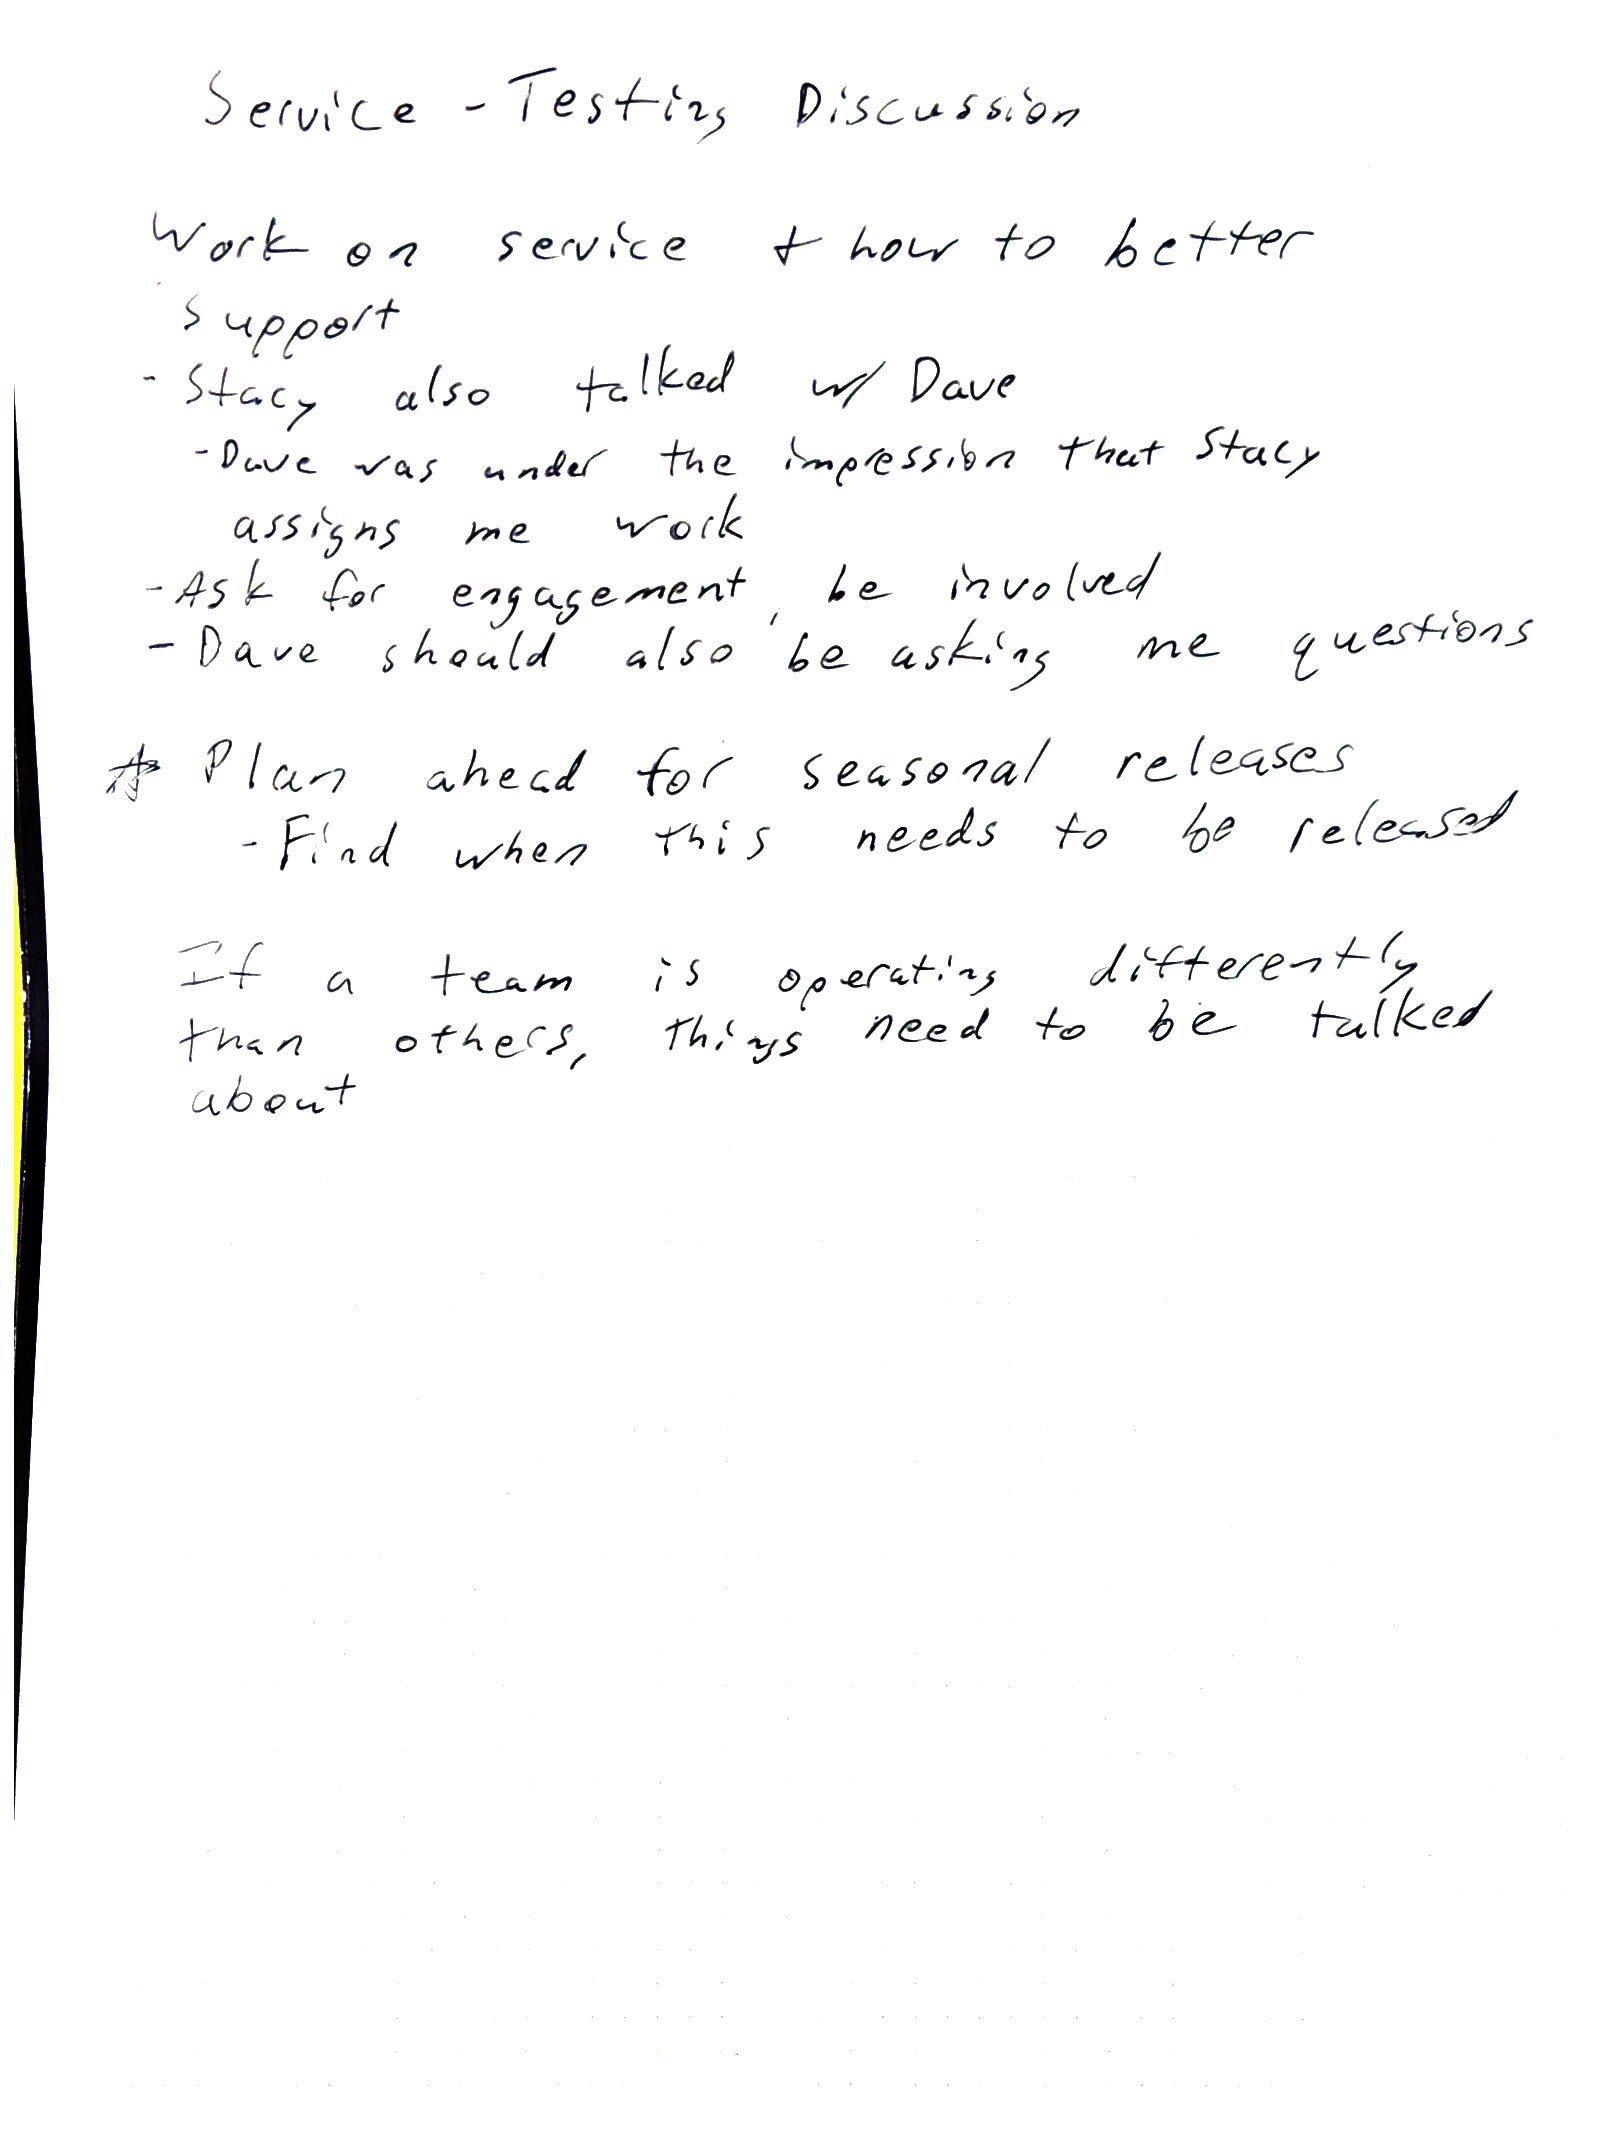 Service - Testing Discussion
Work on service + how to better
support
- Stacy also talked w/ Dave
- Dave was under the impression that Stacy
assigns me work
- Ask for engagement, be involved
- Dave should also be asking me questions
☆ Plan ahead for seasonal releases
- Find when this needs to be released
If a team is operating differently
than others, things need to be talked
about